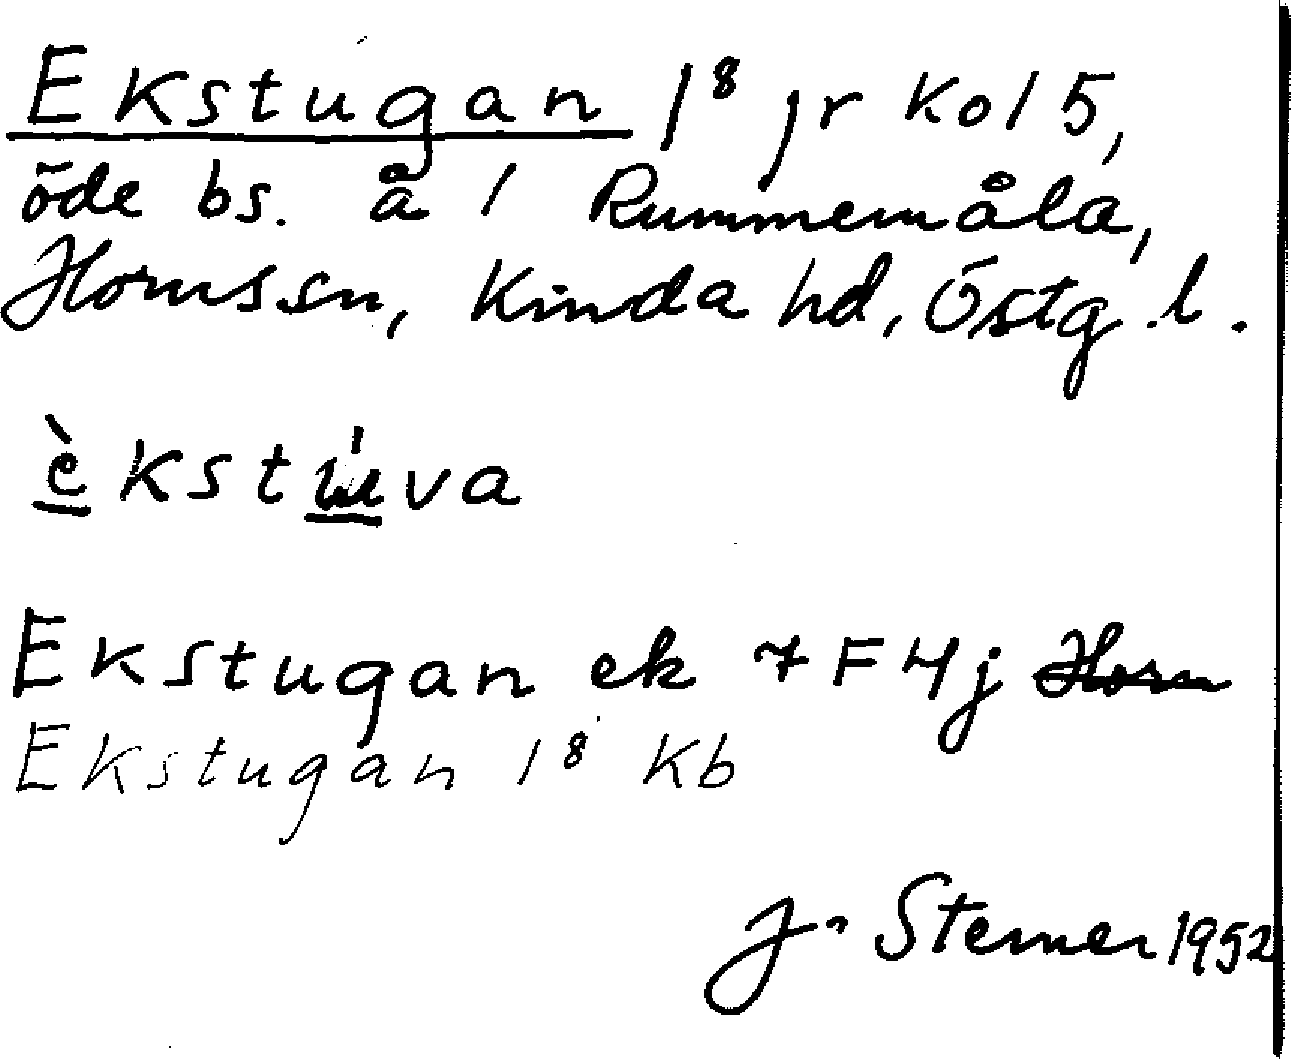 Ekstugan 1⁸ jr kol 5,
öde bs. å 1 Rummemåla,
Horns sn, Kinda hd, Östg.l.
èkstu̍va
Ekstugan ek 7F4j Horn
Ekstugan 1⁸ Kb
J. Sterner 1952